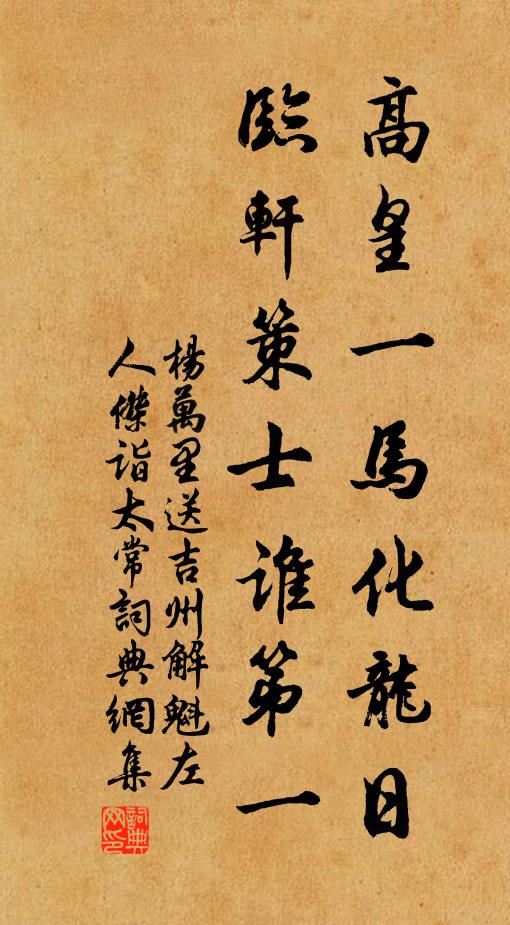 高皇一馬化龍日
臨軒策士谁第一
楊萬里送吉州解魁左
人傑詣太常詞典網集
詞典
网印